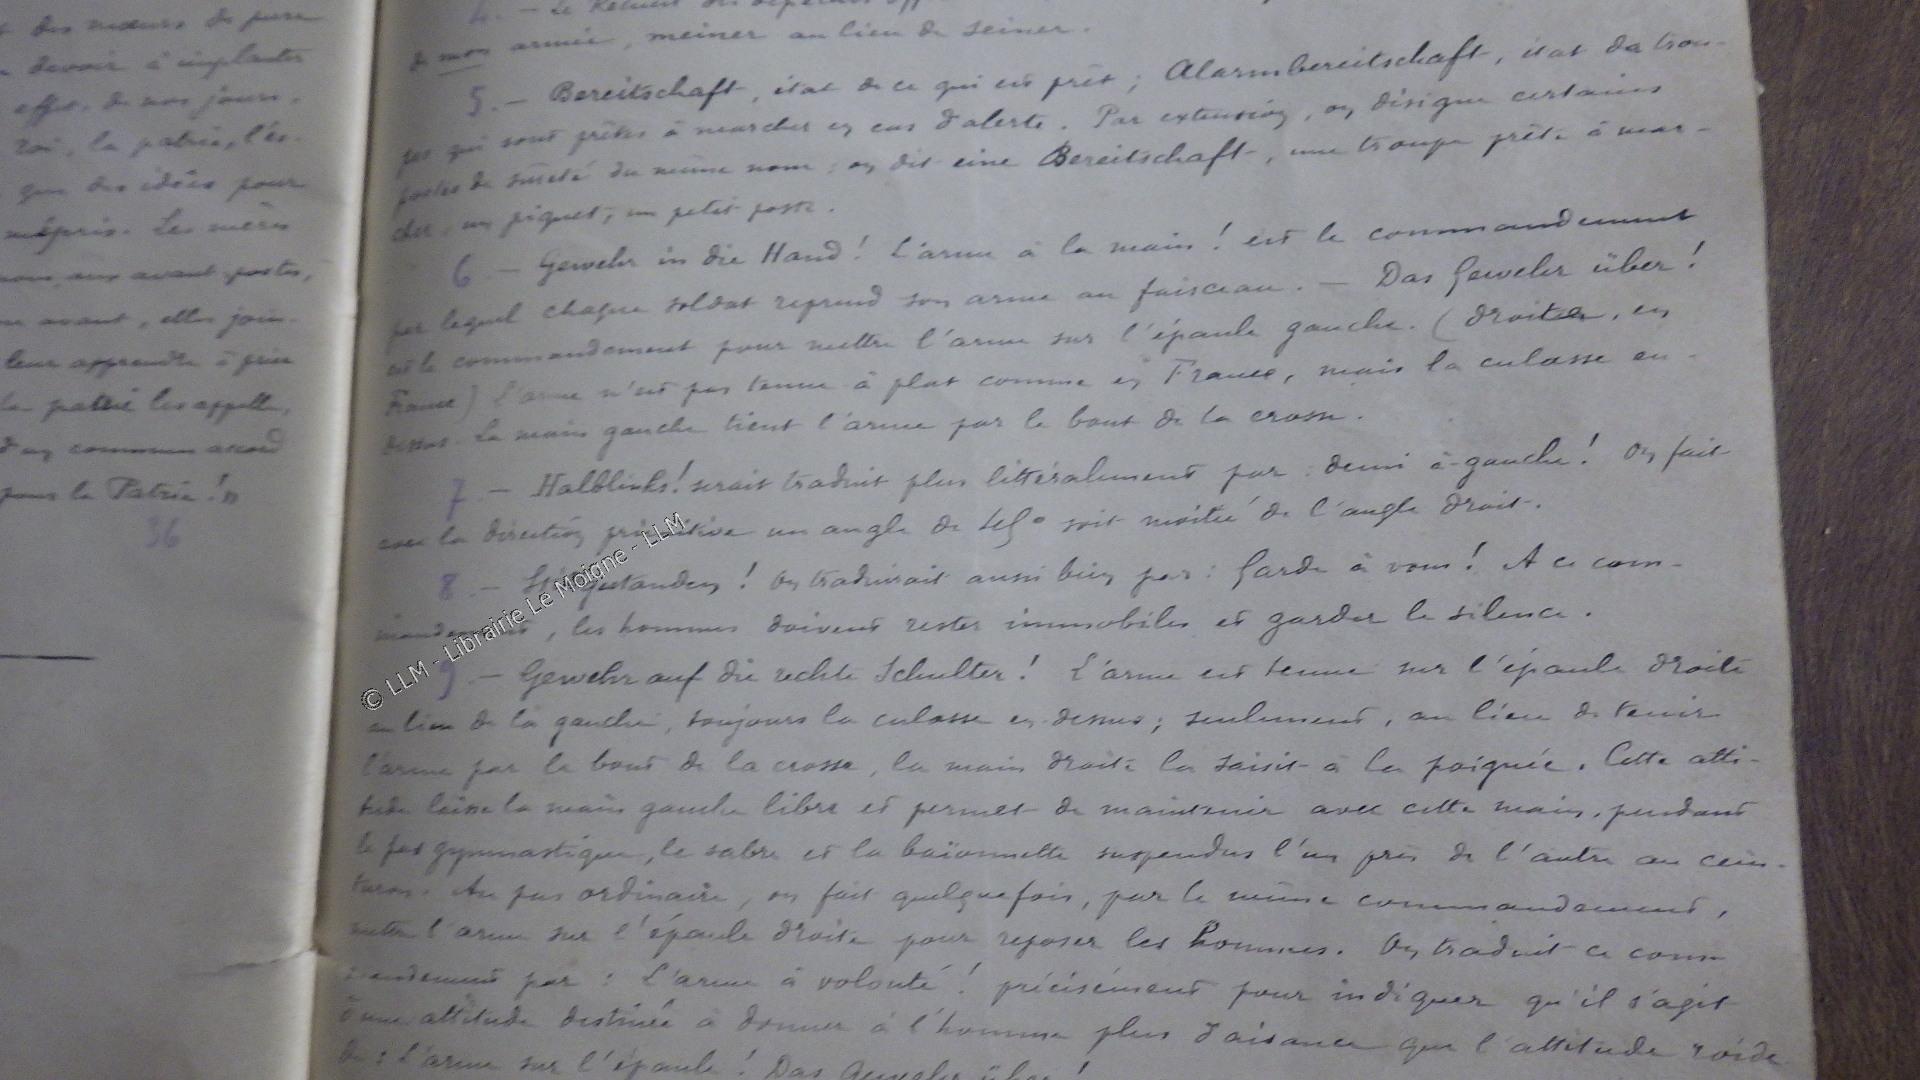 des mœurs de pure
devoir à implanter
effet, de nos jours,
roi, la patrie, l'es-
que des idées pour
mépris. Les mères
nous, aux avant-postes,
en avant, elles join-
leur apprendre à prier
la patrie les appelle,
d'un commun accord
pour la Patrie ! »
36
4. – Le
de mon armée, meiner au lieu de seiner.
5. – Bereitschaft, état de ce qui est prêt ; Alarmbereitschaft, état de trou-
pes qui sont prêtes à marcher en cas d'alerte. Par extension, on désigne certains
postes de sûreté du même nom ; on dit eine Bereitschaft, une troupe prête à mar-
cher, un piquet, un petit poste.
6. – Gewehr in die Hand ! L'arme à la main ! est le commandement
par lequel chaque soldat reprend son arme au faisceau. – Das Gewehr über !
est le commandement pour mettre l'arme sur l'épaule gauche. (droite, en
France) l'arme n'est pas tenue à plat comme en France, mais la culasse en-
dessus. La main gauche tient l'arme par le bout de la crosse.
7. – Halblinks ! serait traduit plus littéralement par : demi à-gauche ! On fait
avec la direction primitive un angle de 45° soit moitié de l'angle droit.
8. – Stillgestanden ! On traduirait aussi bien par : Garde à vous ! A ce com-
mandement, les hommes doivent rester immobiles et garder le silence.
9. – Gewehr auf die rechte Schulter ! L'arme est tenue sur l'épaule droite
au lieu de la gauche, toujours la culasse en dessus ; seulement, au lieu de tenir
l'arme par le bout de la crosse, la main droite la saisit à la poignée. Cette atti-
tude laisse la main gauche libre et permet de maintenir avec cette main, pendant
le pas gymnastique, le sabre et la baïonnette suspendus l'un près de l'autre au cein-
turon. Au pas ordinaire, on fait quelquefois, par le même commandement,
mettre l'arme sur l'épaule droite pour reposer les hommes. On traduit ce com
mandement par : L'arme à volonté ! précisément pour indiquer qu'il s'agit
d'une attitude destinée à donner à l'homme plus d'aisance que l'attitude roide
de : L'arme sur l'épaule ! Das Gewehr über !
© LLM - Librairie Le Moigne - LLM